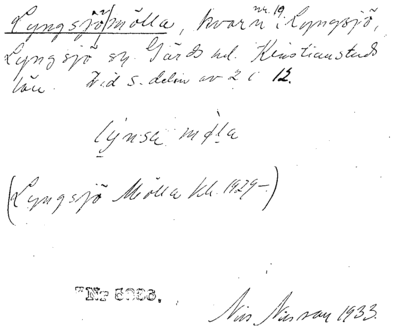 Lyngsjömölla, kvarn nr 19 i Lyngsjö,
Lyngsjö sn. Gärds hd. Kristianstads
län. Vid s. delen av 2 i 12.
lýnsa mø̨la
(Lyngsjö Mölla Kh. 1929–)
Nr 5936.
Nils Nilsson 1933.